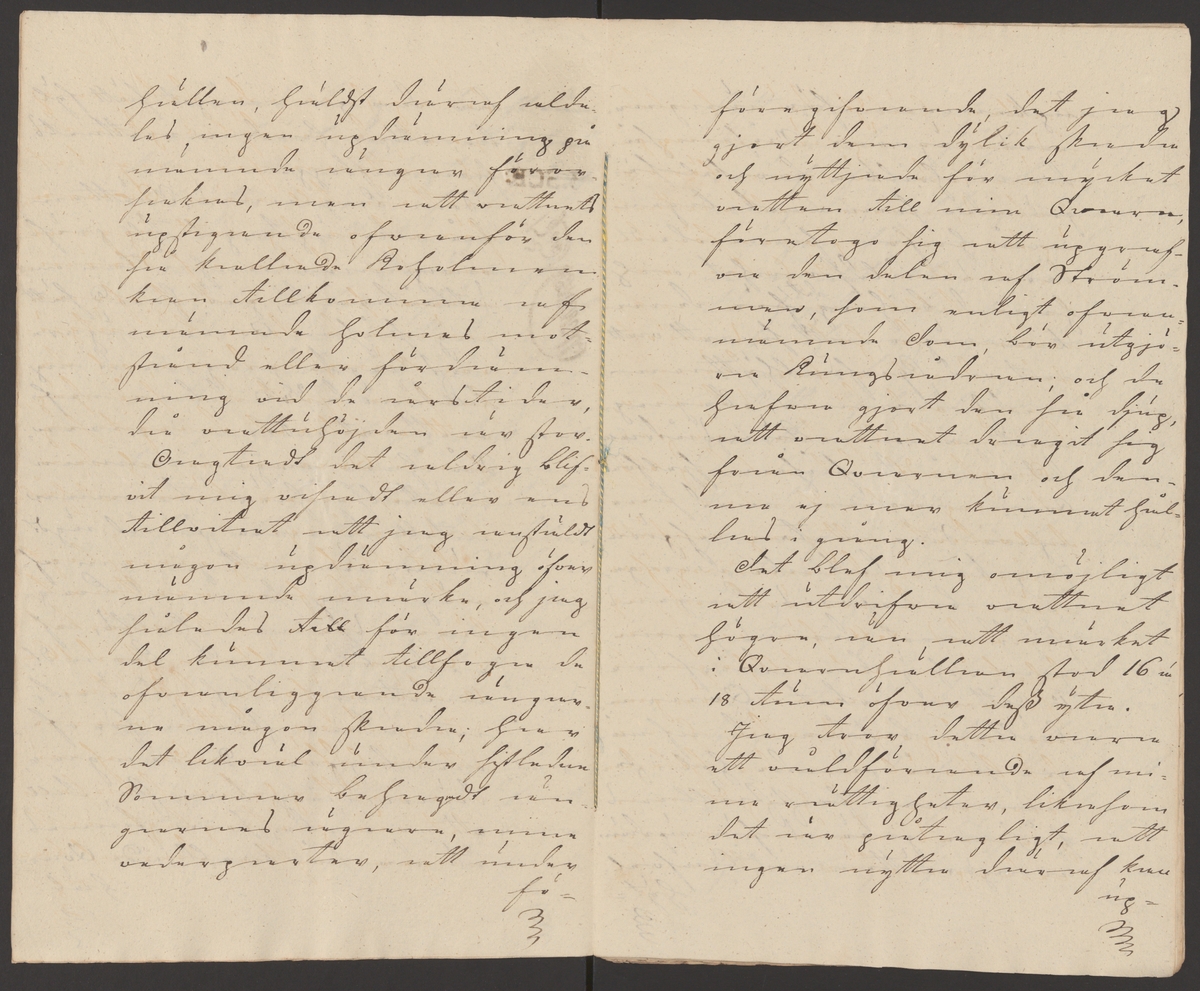 hällen, häldst däraf alde-
les ingen updämning på
nämnde ängar föror-
sakas, men att vattnets
upstigande ofvanför den
så kallade Roholmen
kan tillkomma af
nämnde holmes mot-
stånd eller fördäm-
ning vid de årstider,
då vattuhöjden är stor.
Oagtadt det aldrig blif-
vit mig visadt eller ens
tillvitat att jag anstäldt
någon updämning öfver
nämnde märke, och jag
således till för ingen
del kunnat tillfoga de
ofvanliggande ängar-
ne någon skada; har
det likväl under sistledne
Sommar behagadt än-
garnes ägare, mina
vederparter, att under
fö-
föregifvande, det jag
gjort dem dylik skada
och nyttjade för mycket
vatten till min Qvarn,
företogo sig att upgraf-
va den delen af Ström-
men, som enligt ofvan-
nämnde Dom, bör utgjö-
ra Kungsådran; och de
hafva gjort den så djup,
att vattnet dragit sig
från Qvarnen och den-
na ej mer kunnat hål-
las i gång.
Det blef mig omöjligt
att utdrifva vattnet
högre, än att märket
i Qvarnhällan stod 16 à
18 tum öfver dess yta.
Jag tror detta vara
ett våldförande af mi-
na rättigheter, likasom
det är påtagligt, att
ingen nytta däraf kan
up-